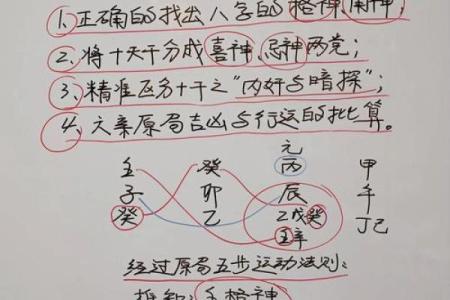 1、正确的找出八字的格神、用神;
2、将十天干分成喜神、忌神两党;
3、精准区分十干之“内奸与暗探”;
4、六亲原局吉凶与行运的批算。
元
壬 癸 丙 甲
子 卯 辰 午
癸 乙 乙戊癸 丁己
壬辛
经过原局五步运动法则:
推知: 格神